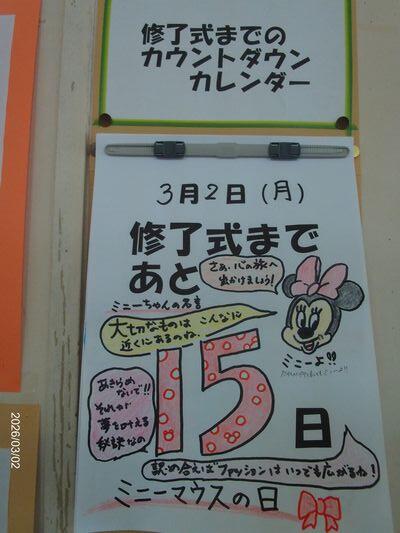 修了式までの
カウントダウン
カレンダー
3月2日(月)
修了式まで
あと
さぁ、心の旅へ
出かけましょう!
ミニーちゃんの名言
大切なものは こんなに
近くにあるのね。
ミニーよ!!
あきらめ
ないで!!
それが
夢を叶える
秘訣なの
15
日
認め合えば ファッションは いつでも広がるね!
ミニーマウスの日
2026/03/02